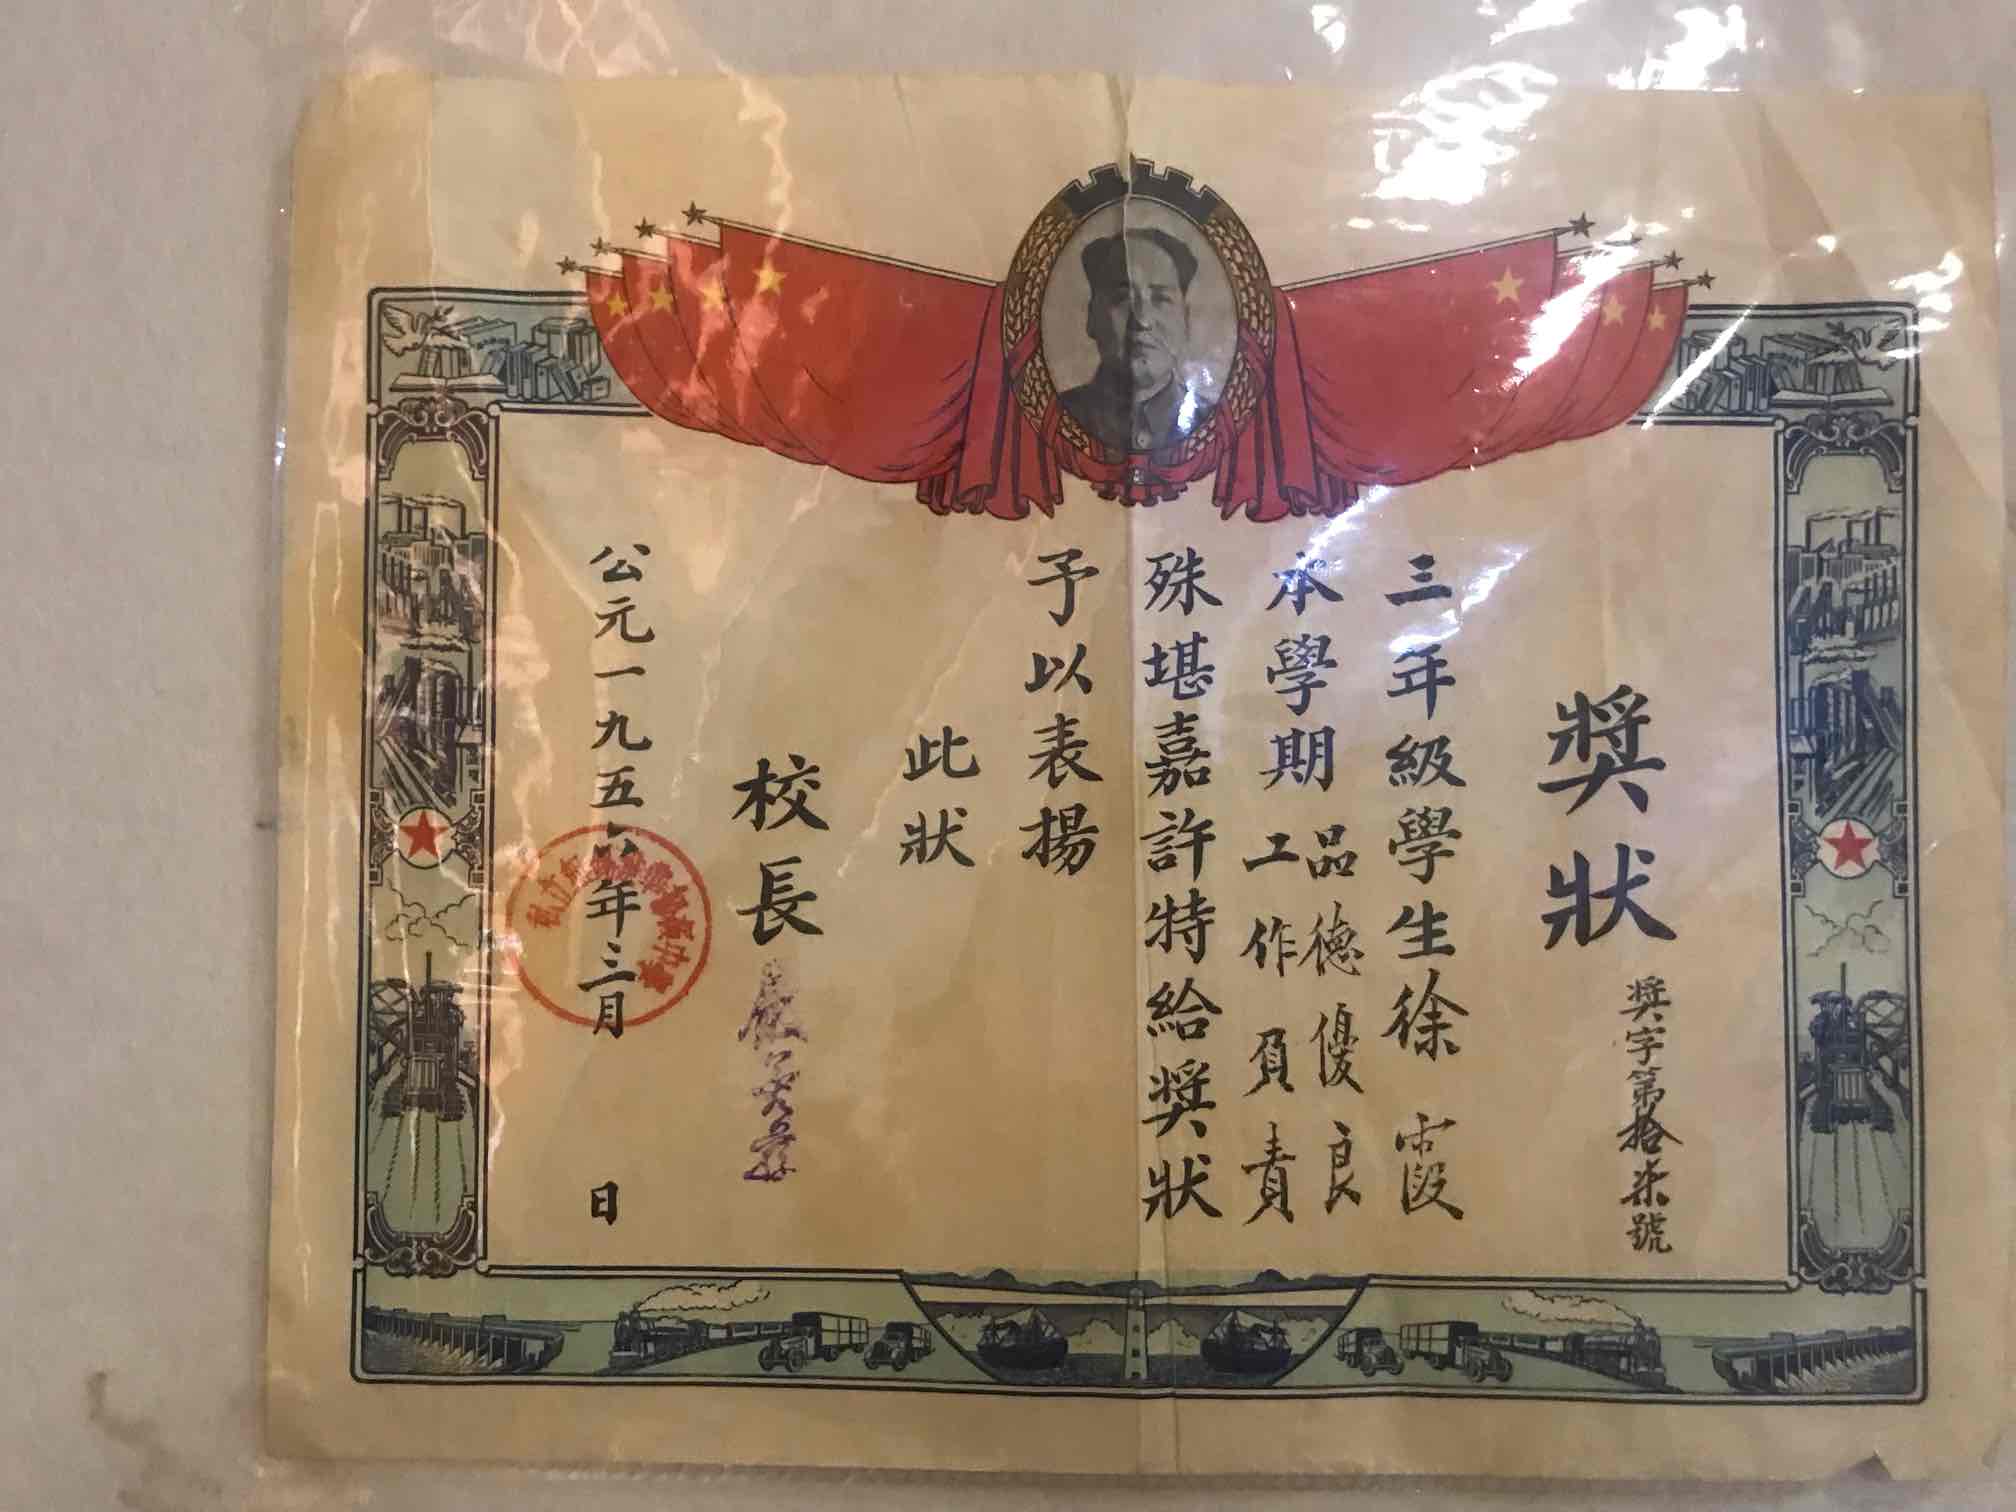 獎狀
獎字第拾柒號
三年級學生徐霞
本學期品德優良
工作負責
殊堪嘉許特給獎狀
予以表揚
此狀
校長
公元一九五六年三月 日
私立